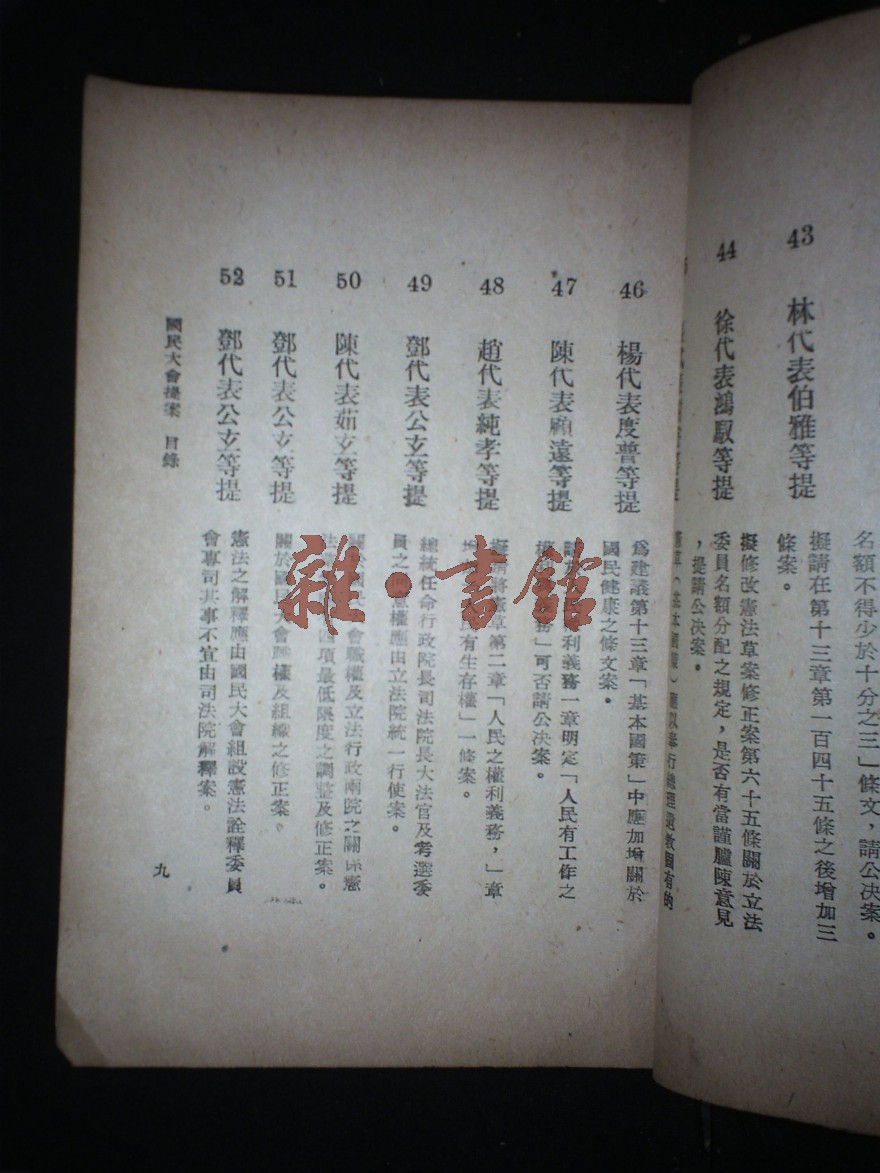 名額不得少於十分之三」條文,請公決案。
43 林代表伯雅等提
擬請在第十三章第一百四十五條之後增加三
條案。
44 徐代表鴻馭等提
擬修改憲法草案修正案第六十五條關於立法
委員名額分配之規定,是否有當謹臚陳意見
,提請公決案。
46 楊代表度普等提
爲建議第十三章「基本國策」中應加增關於
國民健康之條文案。
47 陳代表顧遠等提
利義務一章明定「人民有工作之
務」可否請公決案。
48 趙代表純孝等提
擬請將憲草第二章「人民之權利義務,」章
有生存權」一條案。
49 鄧代表公玄等提
總統任命行政院長司法院長大法官及考選委
員之同意權應由立法院統一行使案。
50 陳代表茹玄等提
會職權及立法行政兩院之關係憲
法
四項最低限度之調整及修正案。
51 鄧代表公玄等提
關於國民大會職權及組織之修正案。
52 鄧代表公玄等提
憲法之解釋應由國民大會組設憲法詮釋委員
會專司其事不宜由司法院解釋案。
國民大會提案 目錄
九
雜·書館